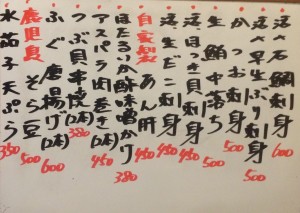 活〆石鯛刺身 600
活〆早生ぶり刺身 500
かつお刺身 500
生 鮪中落ち 500
活ほき貝刺身 450
活生だこ刺身 450
自家製 あん肝 450
ほたるいか酢味噌かけ 380
アスパラ肉巻き(2本) 450
つぶ貝串焼(2本) 380
ふぐ唐揚げ 600
鹿児島 そら豆 500
水茄子天ぷら 350